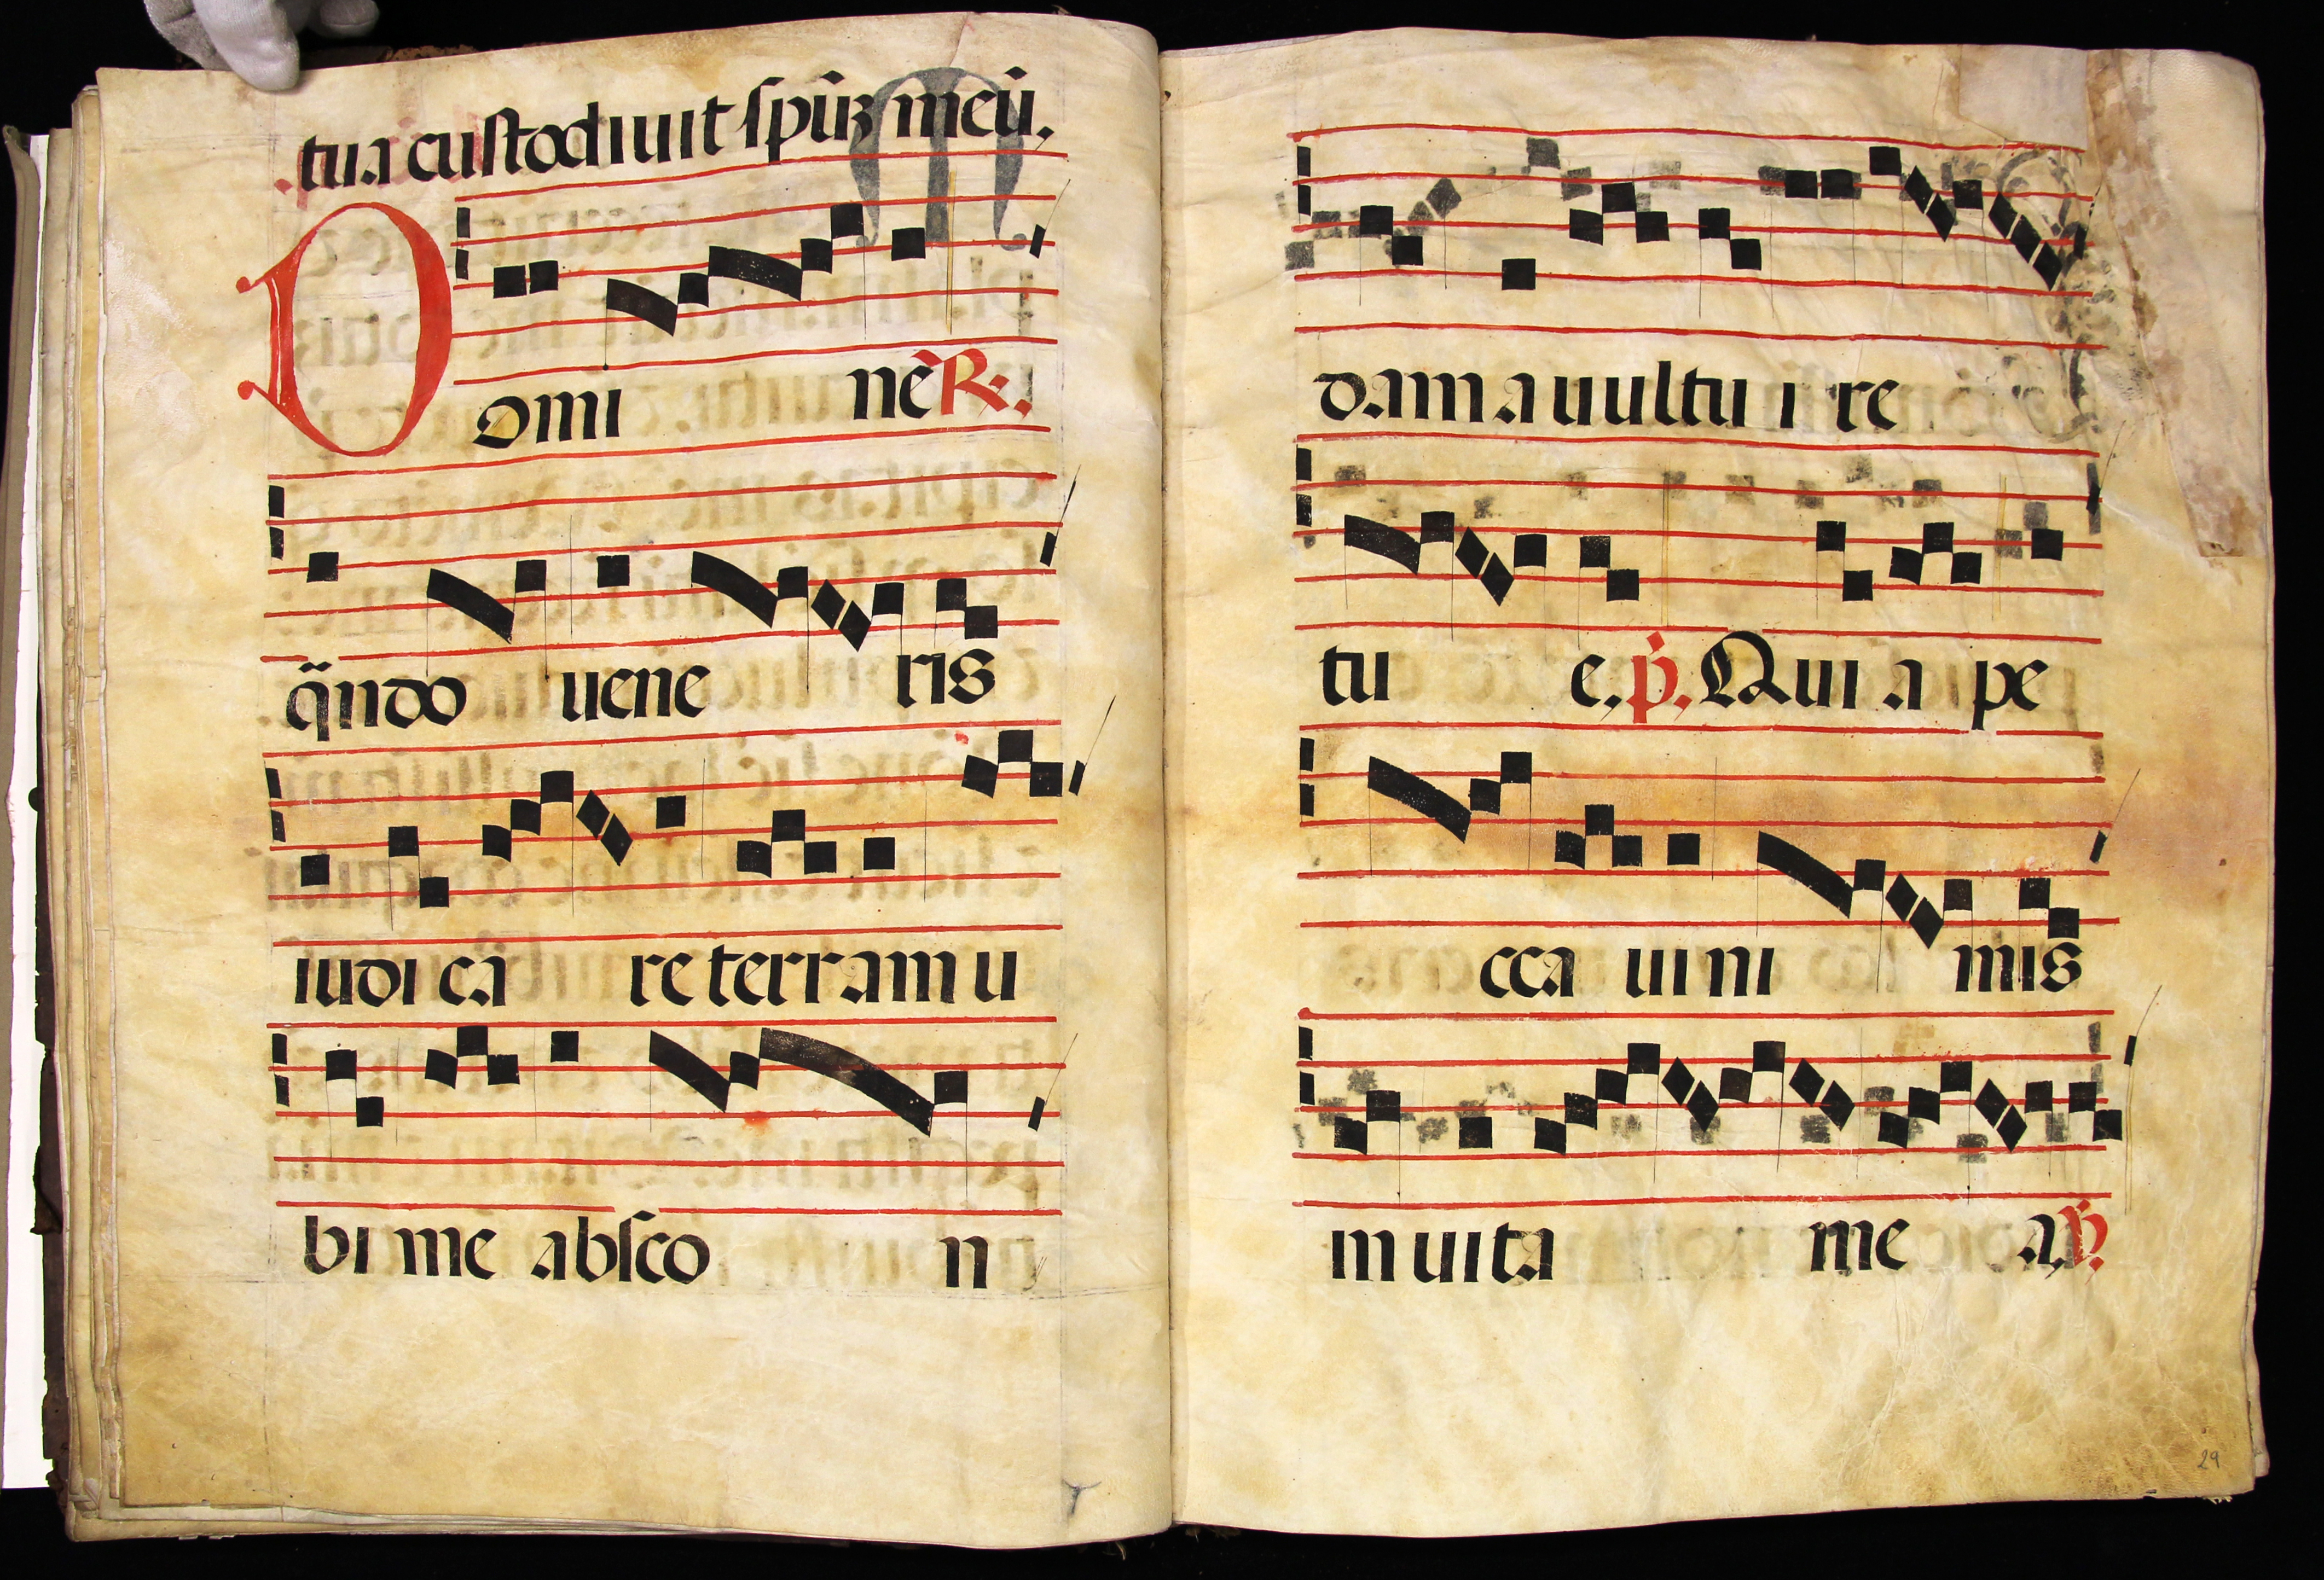 tua custodiuit spūȝ meū.
Domi nē R.
q̈ndo uene ris
iudi ca re terram u
bi me absco n
dam a uultu i re
tu e. p̄. Qui a pe
cca ui ni mis
in uita me a. ṽ.
29